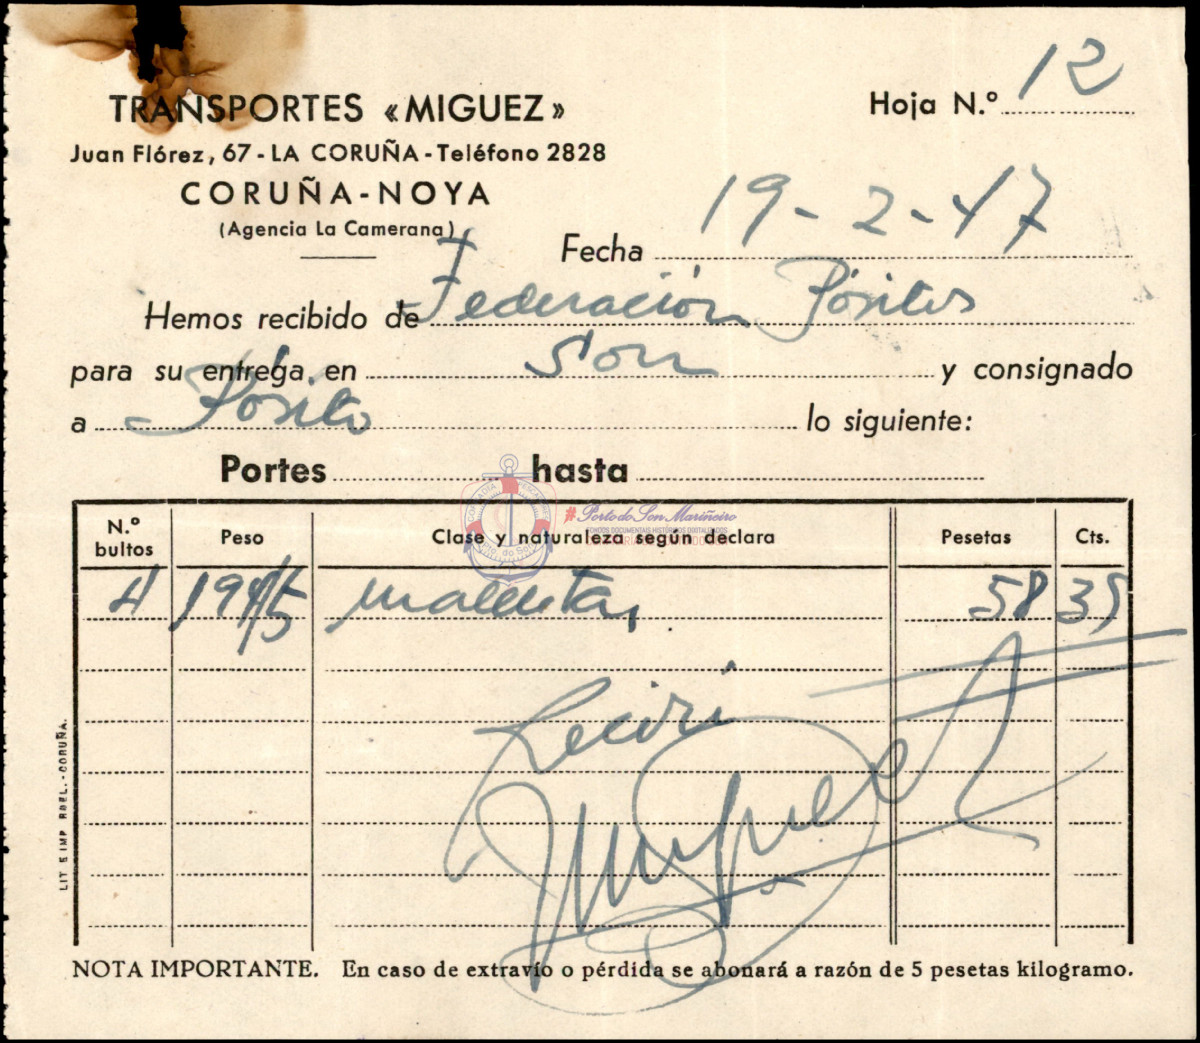 TRANSPORTES «MIGUEZ»
Hoja N.º 12
Juan Flórez, 67 - LA CORUÑA - Teléfono 2828
CORUÑA - NOYA
(Agencia La Camerana)
Fecha 19-2-47
Hemos recibido de Federación Pósitos
para su entrega en Son y consignado
a Pósito lo siguiente:
Portes hasta
N.º bultos Peso Clase y naturaleza según declara Pesetas Cts.
4 maletas 58 35
Recibí
Miguez
#Porto do Son Mariñeiro
LIT E IMP ROEL.-CORUÑA.
NOTA IMPORTANTE. En caso de extravío o pérdida se abonará a razón de 5 pesetas kilogramo.